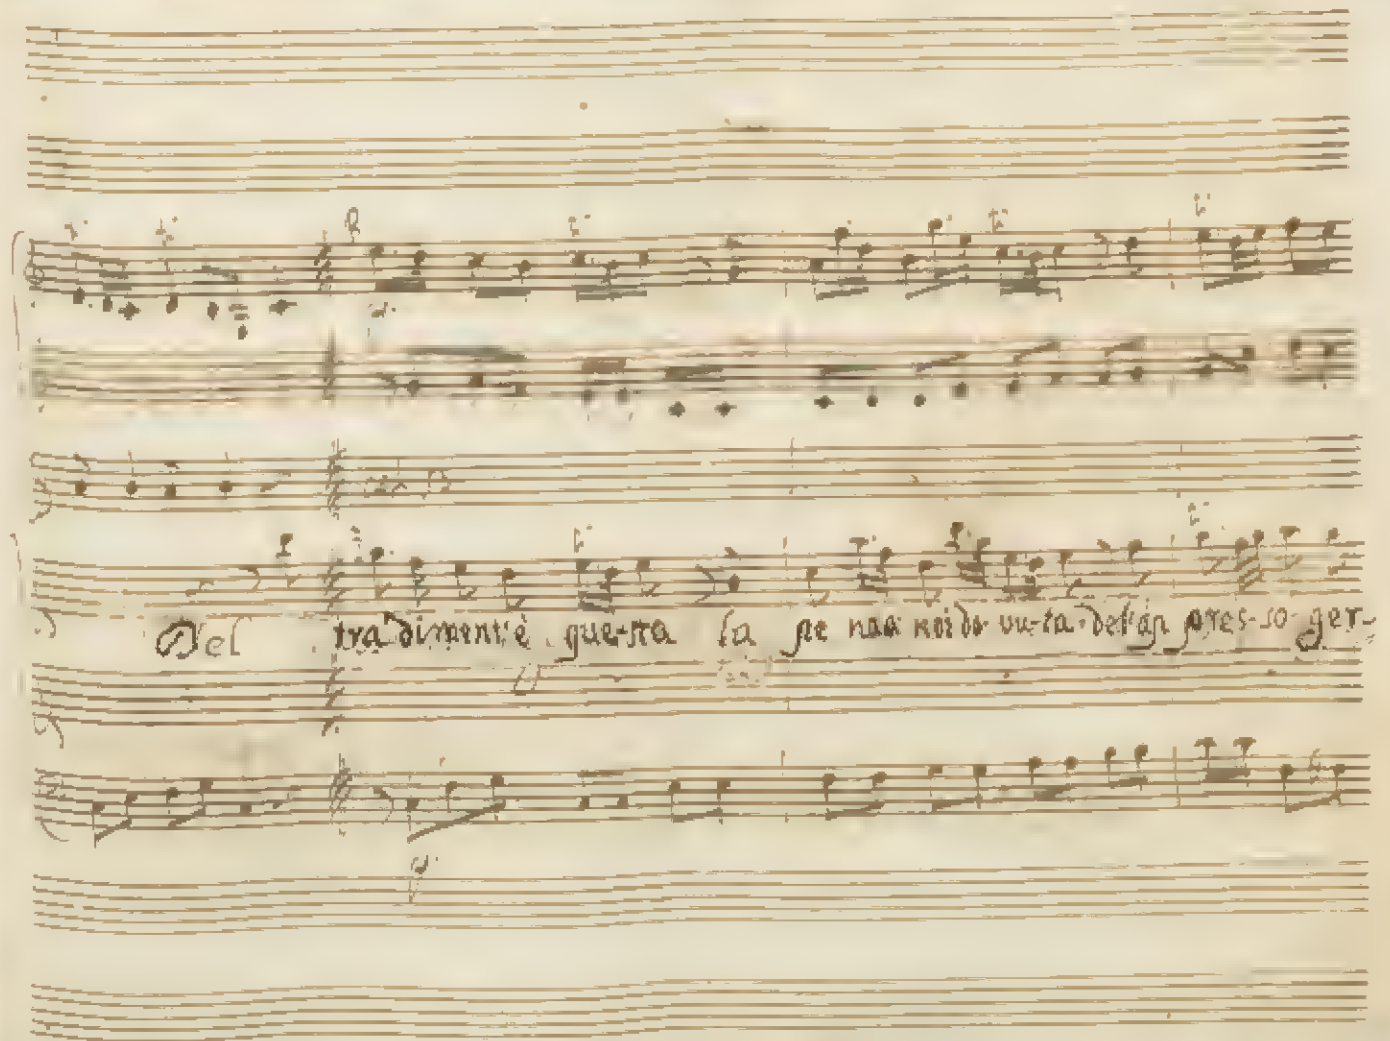 Del tradiment'è que-sta la pe naa noi do-vu-ta-del'ap pres-so-ger-